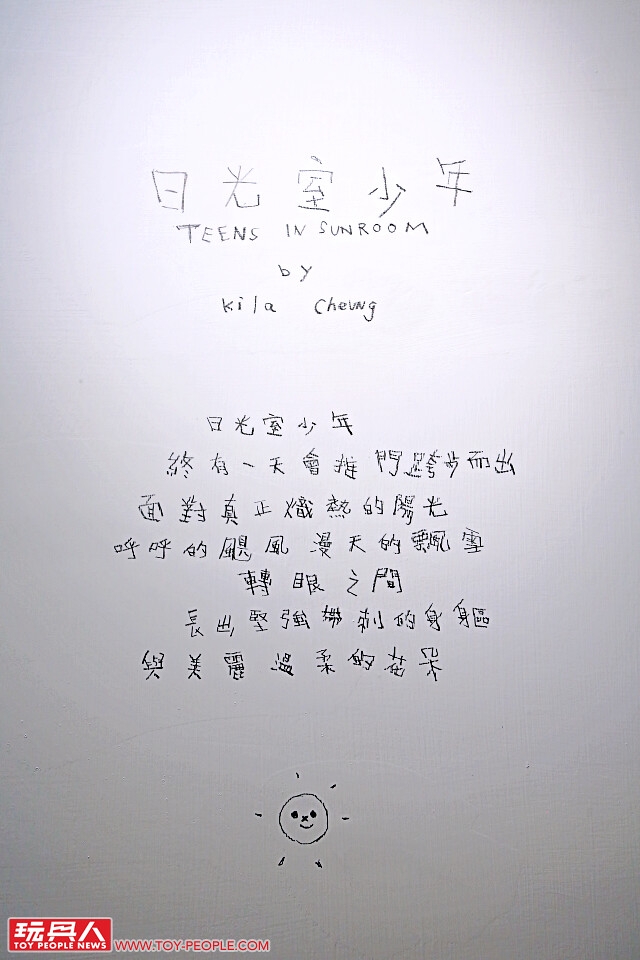 日光室少年
TEENS IN SUNROOM
by
Kila Cheung
日光室少年
終有一天會推門跨步而出
面對真正熾熱的陽光
呼呼的颶風漫天的飄雪
轉眼之間
長出堅強帶刺的身軀
與美麗溫柔的花朵
玩具人
TOY PEOPLE NEWS
WWW.TOY-PEOPLE.COM